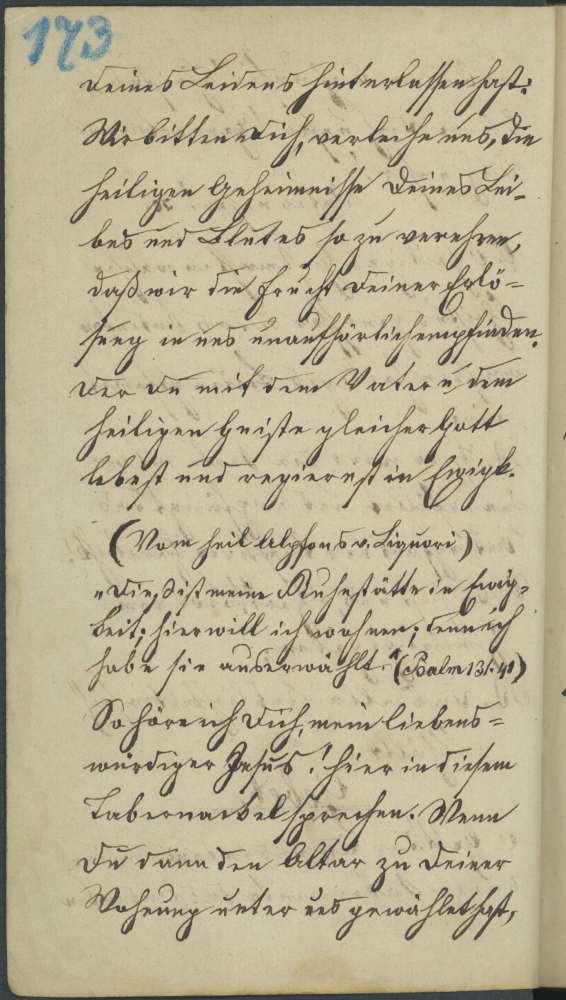 173
Deines Leidens hinterlassen hast:
Wir bitten Dich, verleihe uns, die
heiligen Geheimnisse Deines Lei-
bes und Blutes so zu verehren,
daß wir die Frucht Deiner Erlö-
sung in uns unaufhörlich empfinden.
Der Du mit dem Vater u dem
heiligen Geiste gleicher Gott
lebest und regierest in Ewigk.
(Vom heil Alphons v. Liguori)
"Dieß ist meine Ruhestätte in Ewig-
keit; hier will ich wohnen; denn ich
habe sie auserwählt." (Psalm 131.
So höre ich Dich, mein liebens-
würdiger Jesus! hier in diesem
Tabernackel sprechen. Wenn
Du dann den Altar zu Deiner
Wohnung unter uns gewählet hast,